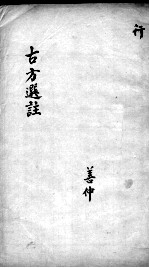 行
古方選註
善仲